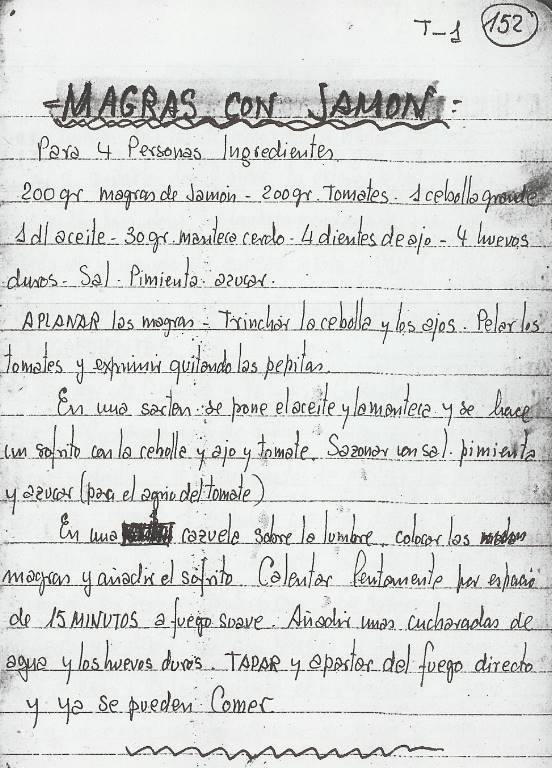 T-1 152
= MAGRAS CON JAMON =
Para 4 Personas Ingredientes
200 gr magras de Jamón - 200 gr. Tomates. 1 cebolla grande
1 dl aceite - 30 gr. manteca cerdo - 4 dientes de ajo - 4 huevos
duros - Sal. Pimienta. azucar.
APLANAR las magras - Trinchar la cebolla y los ajos. Pelar los
tomates y exprimir quitando las pepitas.
En una sarten se pone el aceite y la manteca y se hace
un sofrito con la cebolla y ajo y tomate. Sazonar con sal. pimienta
y azucar (para el agrio del tomate)
En una cazuela sobre la lumbre. colocar las
magras y añadir el sofrito. Calentar lentamente por espacio
de 15 MINUTOS a fuego suave. Añadir unas cucharadas de
agua y los huevos duros. TAPAR y apartar del fuego directo
y ya se pueden Comer